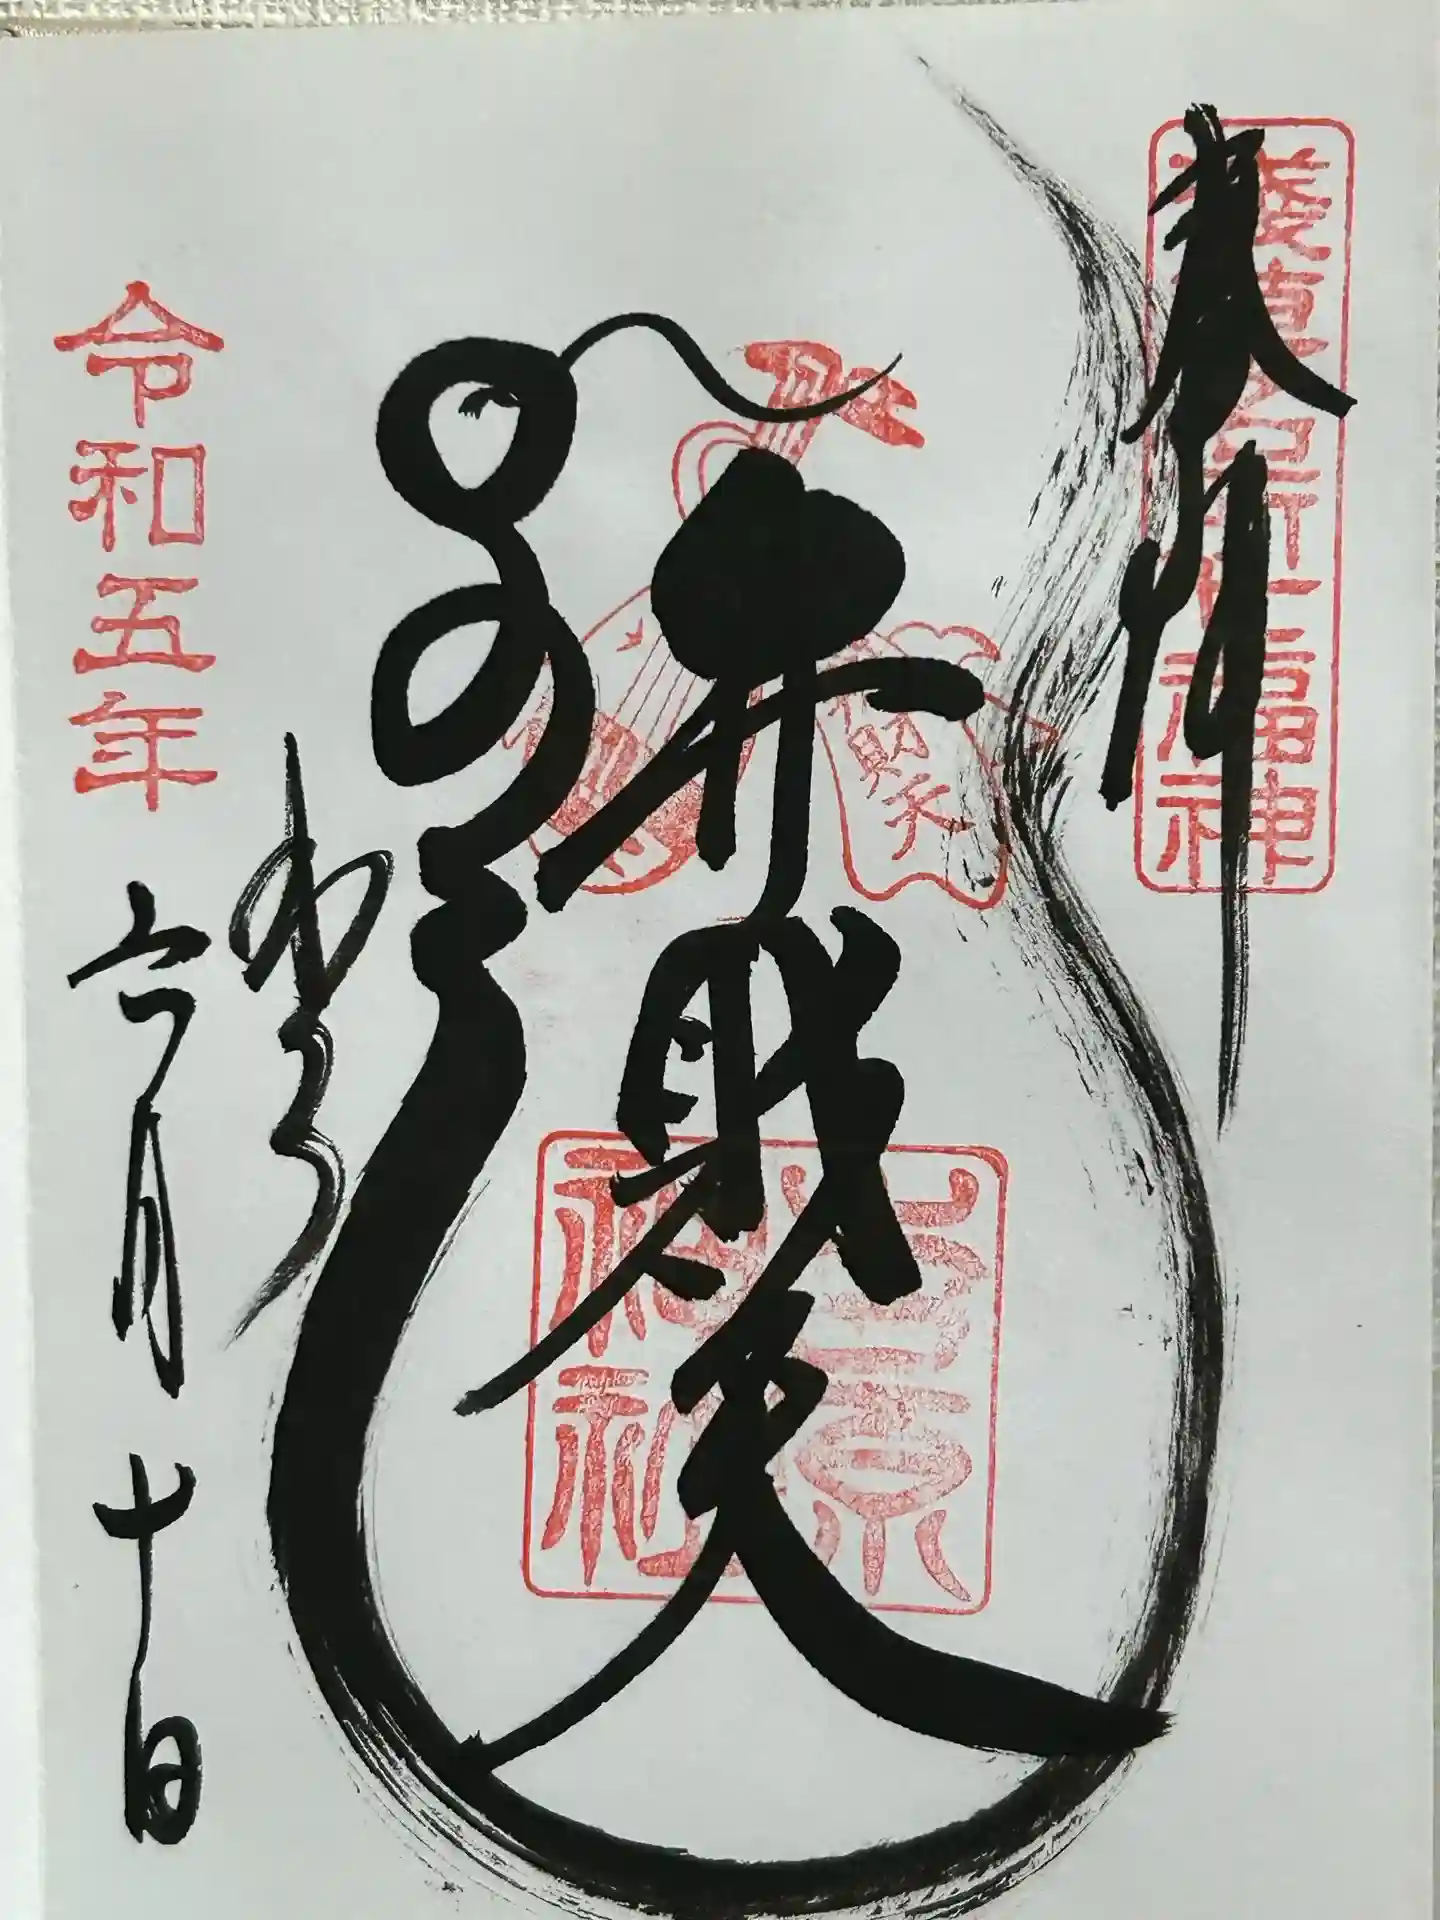 奉拝
淺草名所七福神
弁財天
財天
吉原
神社
令和五年六月十日